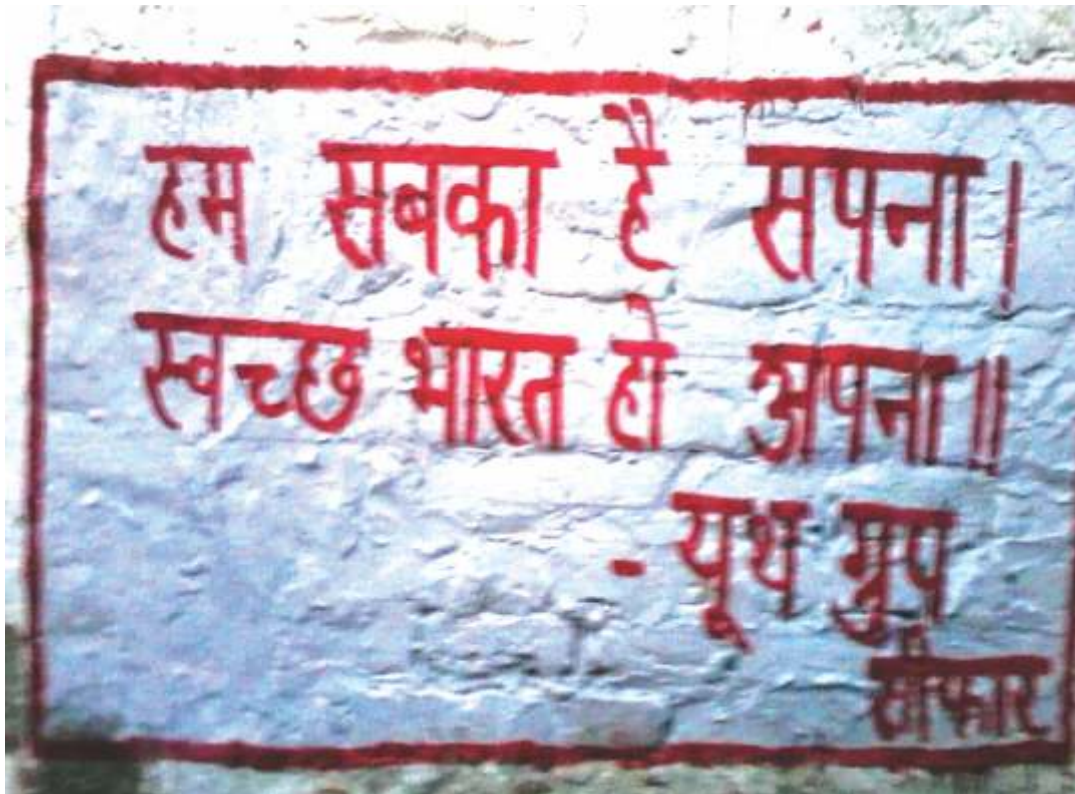 हम सबका है सपना।
स्वच्छ भारत हो अपना॥
- यूथ ग्रुप